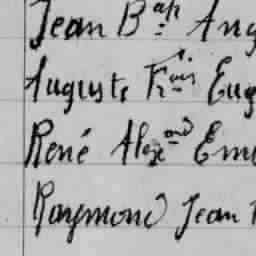 Jean B.apt Ang
Auguste Fr.ois Eug
René Alex.and Em
Raymond Jean